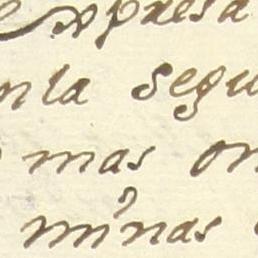 Apresa
nla segu
mas on
minas